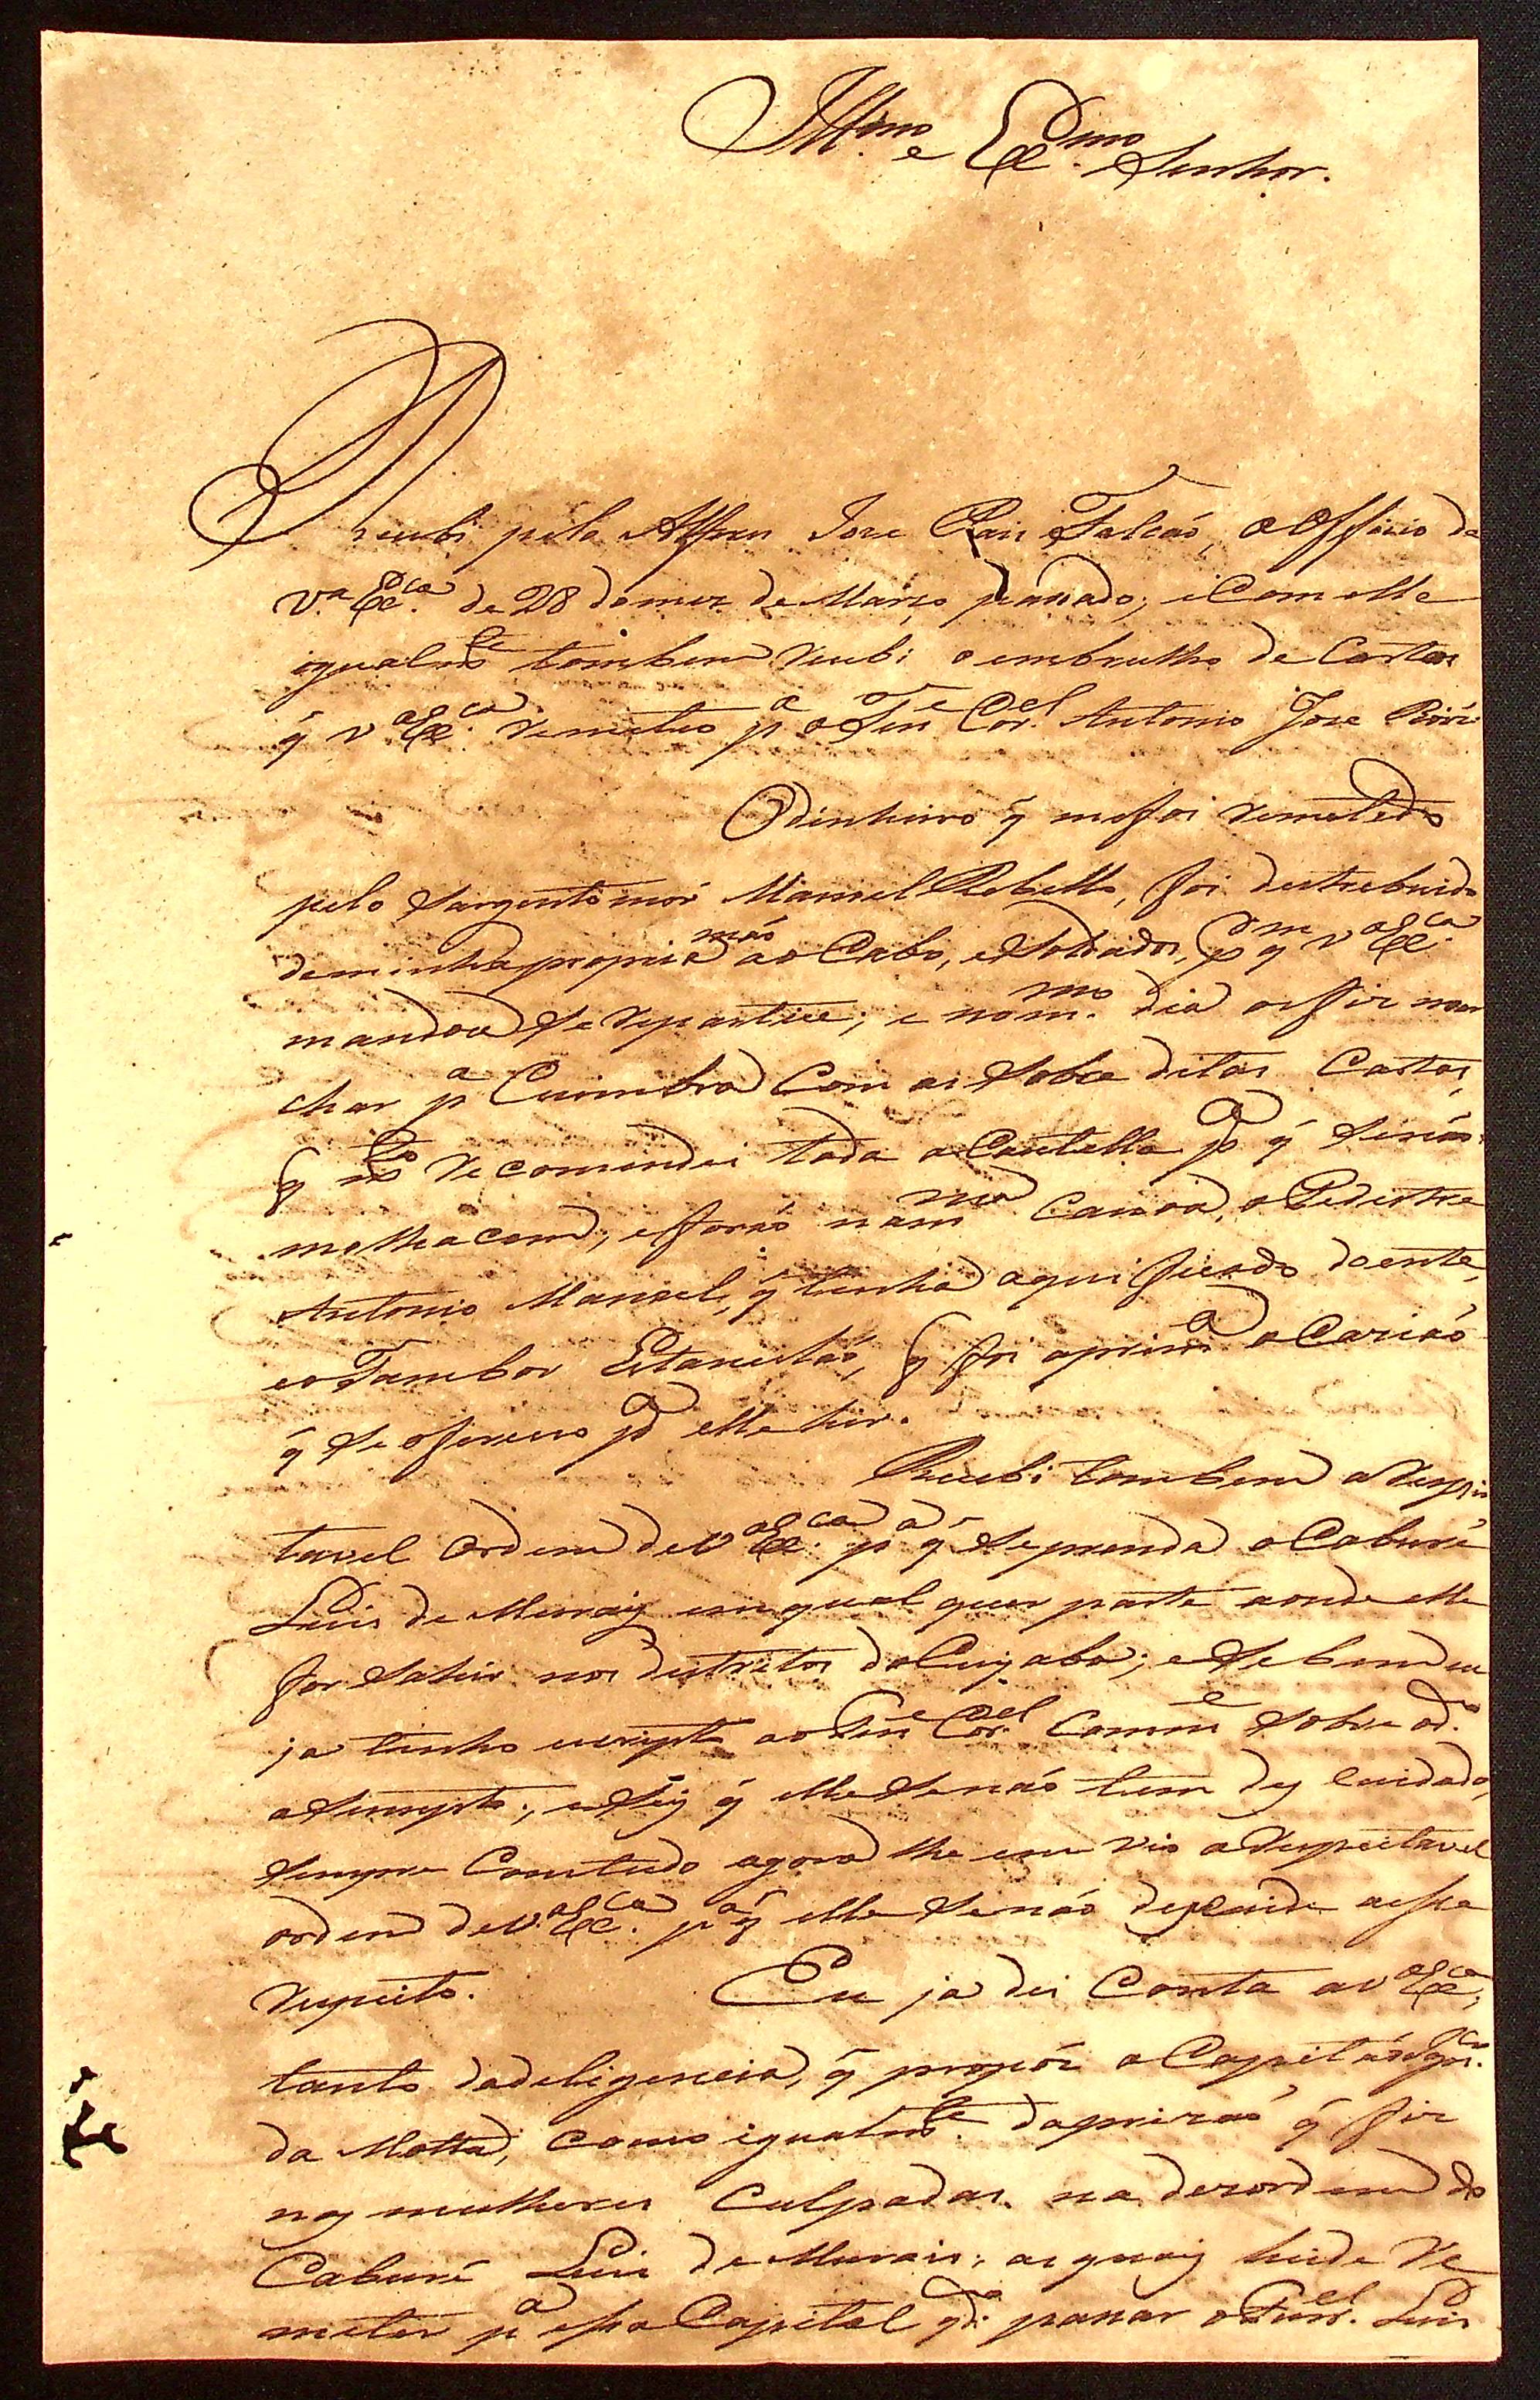 Illmo e Exmo Senhor.
Recebi pelo Alferes Joze Paes Falcaõ, o Officio de
V.a Ex.ca de 28 do mez de Março passado; e Com elle
igualm.te tambem recebi o embrulho de Cartas
q̃ V.a Ex.ca remeteo p.a o Ten.e Cor.el Antonio Joze Roiz
O dinheiro q̃ me foi remetedo
pelo Sargento mór Manoel Rebello, foi destrebuido
de minha propria maõ ao Cabo, e Soldados, q̃ V.a Ex.ca
mandou se repartice; e no m.mo dia os fiz mar
char p.a Cuimbra Com as Sobre ditas Cartas,
q̃ m.to recomendei toda a Cautella p.a q̃ Senaõ
molhacem; e foraõ na m.ma Canoa, o Pedestre
Antonio Manoel, q̃ tinha aqui ficado doente,
e o Tambor Estanesláo, q̃ foi
q̃ se ofereceo p.a elle hir.
Recebi tambem a respei
tavel Ordem de V.a Ex.ca p.a q̃ Seprenda o Caburé
Luis de Moraiz em qual quer parte aonde elle
for Sahir nos destritos do Cuyaba; e Sebem eu
ja tinha escripto ao Ten.e Cor.el Comm.e Sobre o d.o
asumpto; e Sey q̃ elle Senaõ tem descuidado,
Sempre Comtudo agora lhe em vio a respeitavel
ordem de V.a Ex.ca p.a q̃ elle Senaõ descuide a esse
respeito. Eu ja dei Conta a V.a Ex.ca,
tanto da deligencia, q̃ propóz o Capitaõ
da Motta, como igualm.te da prizaõ q̃ fiz
nas mulheres Culpadas na dezordem do
Caburé Luis de Morais; as quaiz heide re
meter p.a essa Capital q.do passar o Furr.el Luis